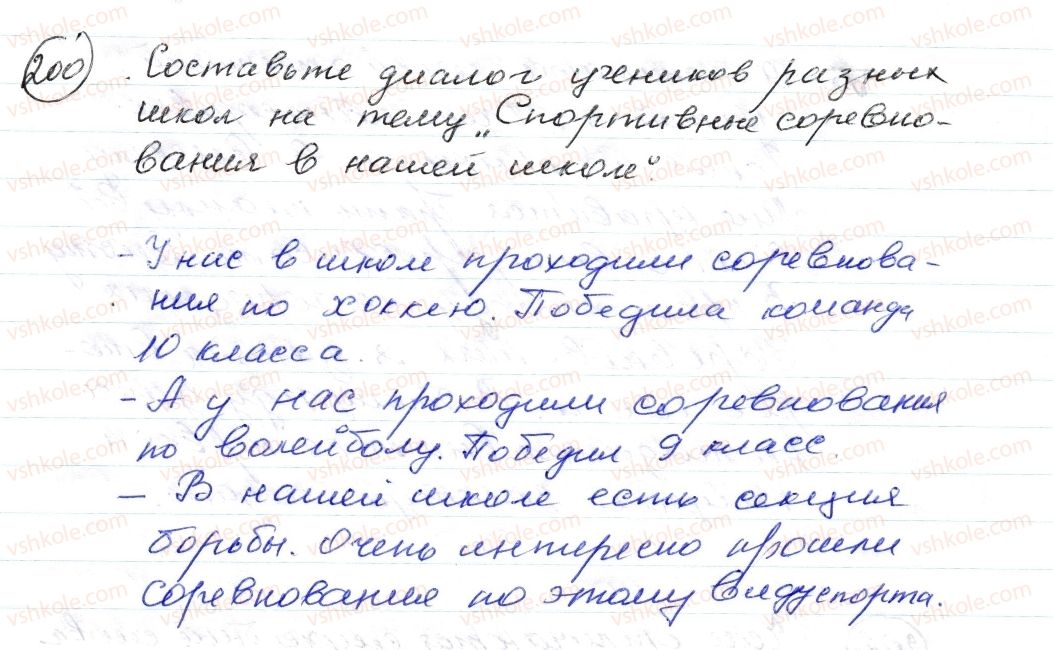 200. Составьте диалог учеников разных
школ на тему „Спортивные соревно-
вания в нашей школе“.
- У нас в школе проходили соревнова-
ния по хоккею. Победила команда
10 класса.
- А у нас проходили соревнования
по волейболу. Победил 9 класс.
- В нашей школе есть секция
борьбы. Очень интересно прошли
соревнования по этому виду спорта.